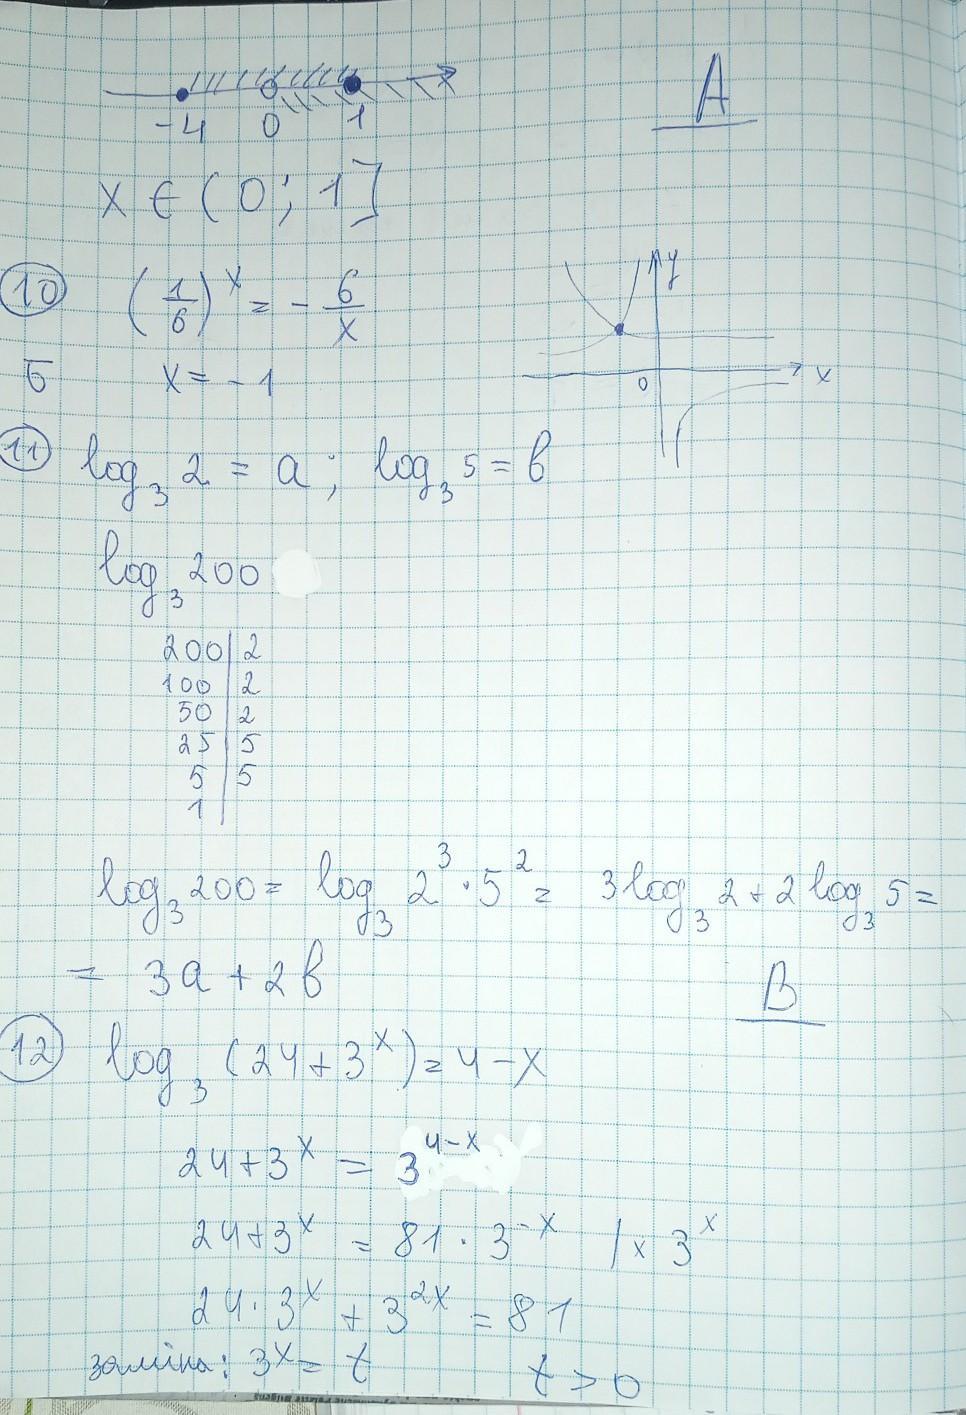 -4 0 1 x
A
x ∈ (0; 1]
10 (1/6)^x = - 6/x
Б x = -1
y
0 x
11 log₃ 2 = a; log₃ 5 = b
log₃ 200
200 | 2
100 | 2
50 | 2
25 | 5
5 | 5
1 |
log₃ 200 = log₃ 2³ · 5² = 3 log₃ 2 + 2 log₃ 5 =
= 3a + 2b
В
12 log₃ (24 + 3^x) = 4 - x
24 + 3^x = 3^(4-x)
24 + 3^x = 81 · 3^(-x) / × 3^x
24 · 3^x + 3^(2x) = 81
заміна: 3^x = t t > 0